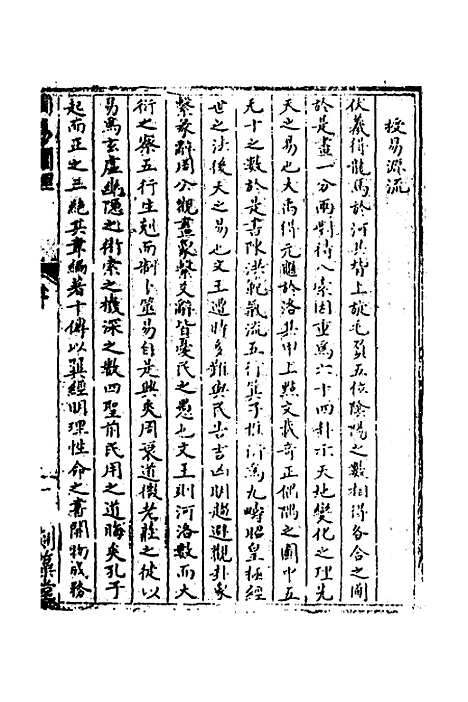 授易源流
伏羲得龍馬於河其背上旋毛有五位陰陽之數相得各合之圖
於是畫一分兩對待八索因重為六十四卦示天地變化之理先
天之易也大禹得元龜於洛其甲上點文載奇正偶隅之圖中五
无十之數於是書陳洪範氣流五行箕子推衍為九疇昭皇極經
世之法後天之易也文王遭時多難與民吉凶明趨避觀卦象
繫彖辭周公觀畫象繫爻辭皆憂民之患也文王則河洛數而大
衍之察五行生剋而制卜筮易自是興矣周衰道微老莊之徒以
易為玄虛幽隱之術索之機深之數四聖前民用之道晦矣孔子
起而正之三絕其韋編著十傳以翼經明理性命之書開物成務